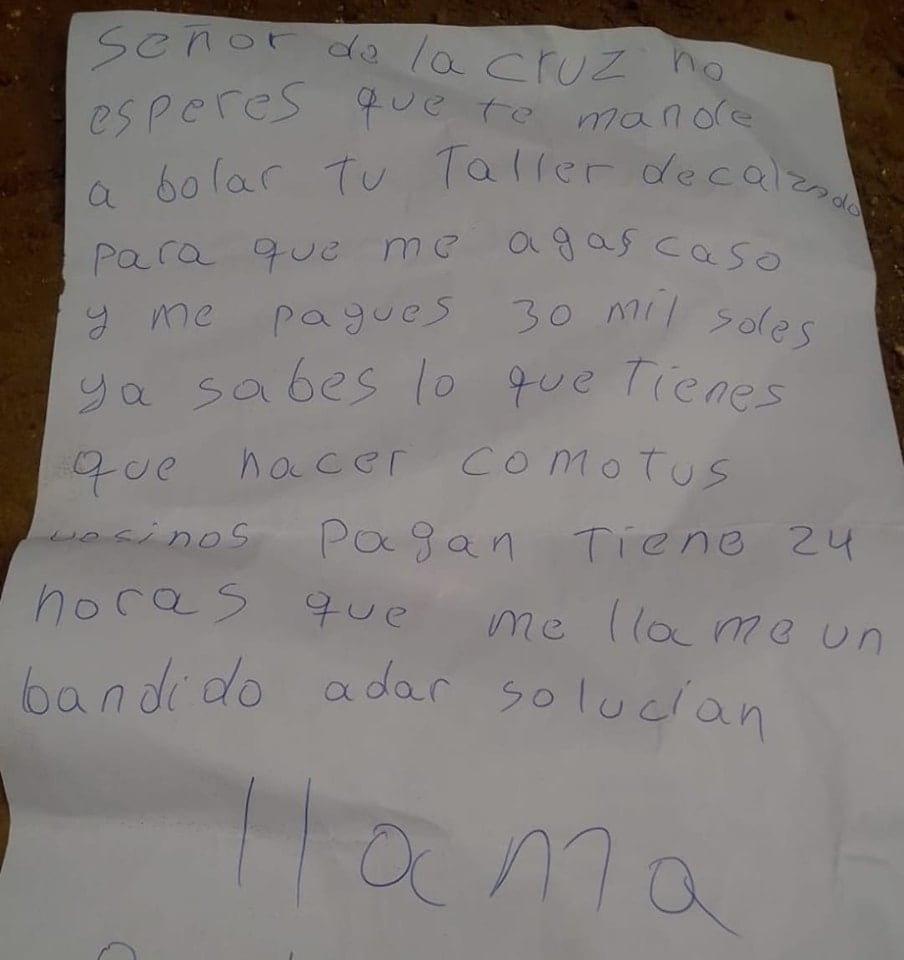 señor de la cruz no
esperes que te mande
a bolar tu Taller decalzado
para que me agas caso
y me pagues 30 mil soles
ya sabes lo que Tienes
que hacer comotus
vesinos pagan Tiene 24
horas que me llame un
bandido adar solucian
llama